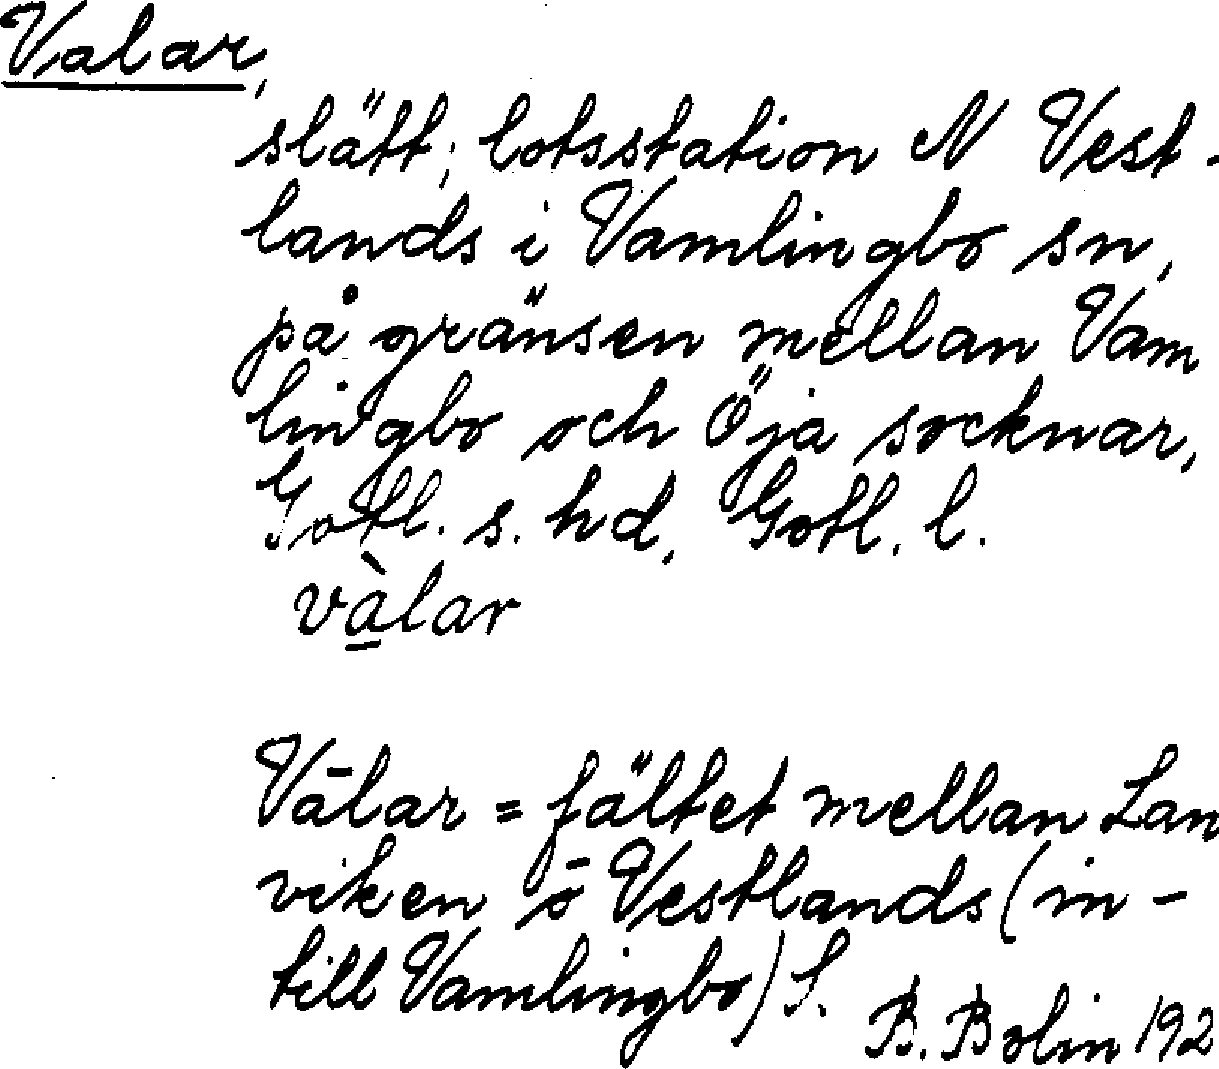 Valar,
slätt; lotsstation N Vest-
lands i Vamlingbo sn,
på gränsen mellan Vam
lingbo och Öja socknar,
Gotl. s. hd, Gotl. l.
vàlar
Vālar = fältet mellan Lan
viken o̅ Vestlands (in-
till Vamlingbo) S.
B. Bolin 192